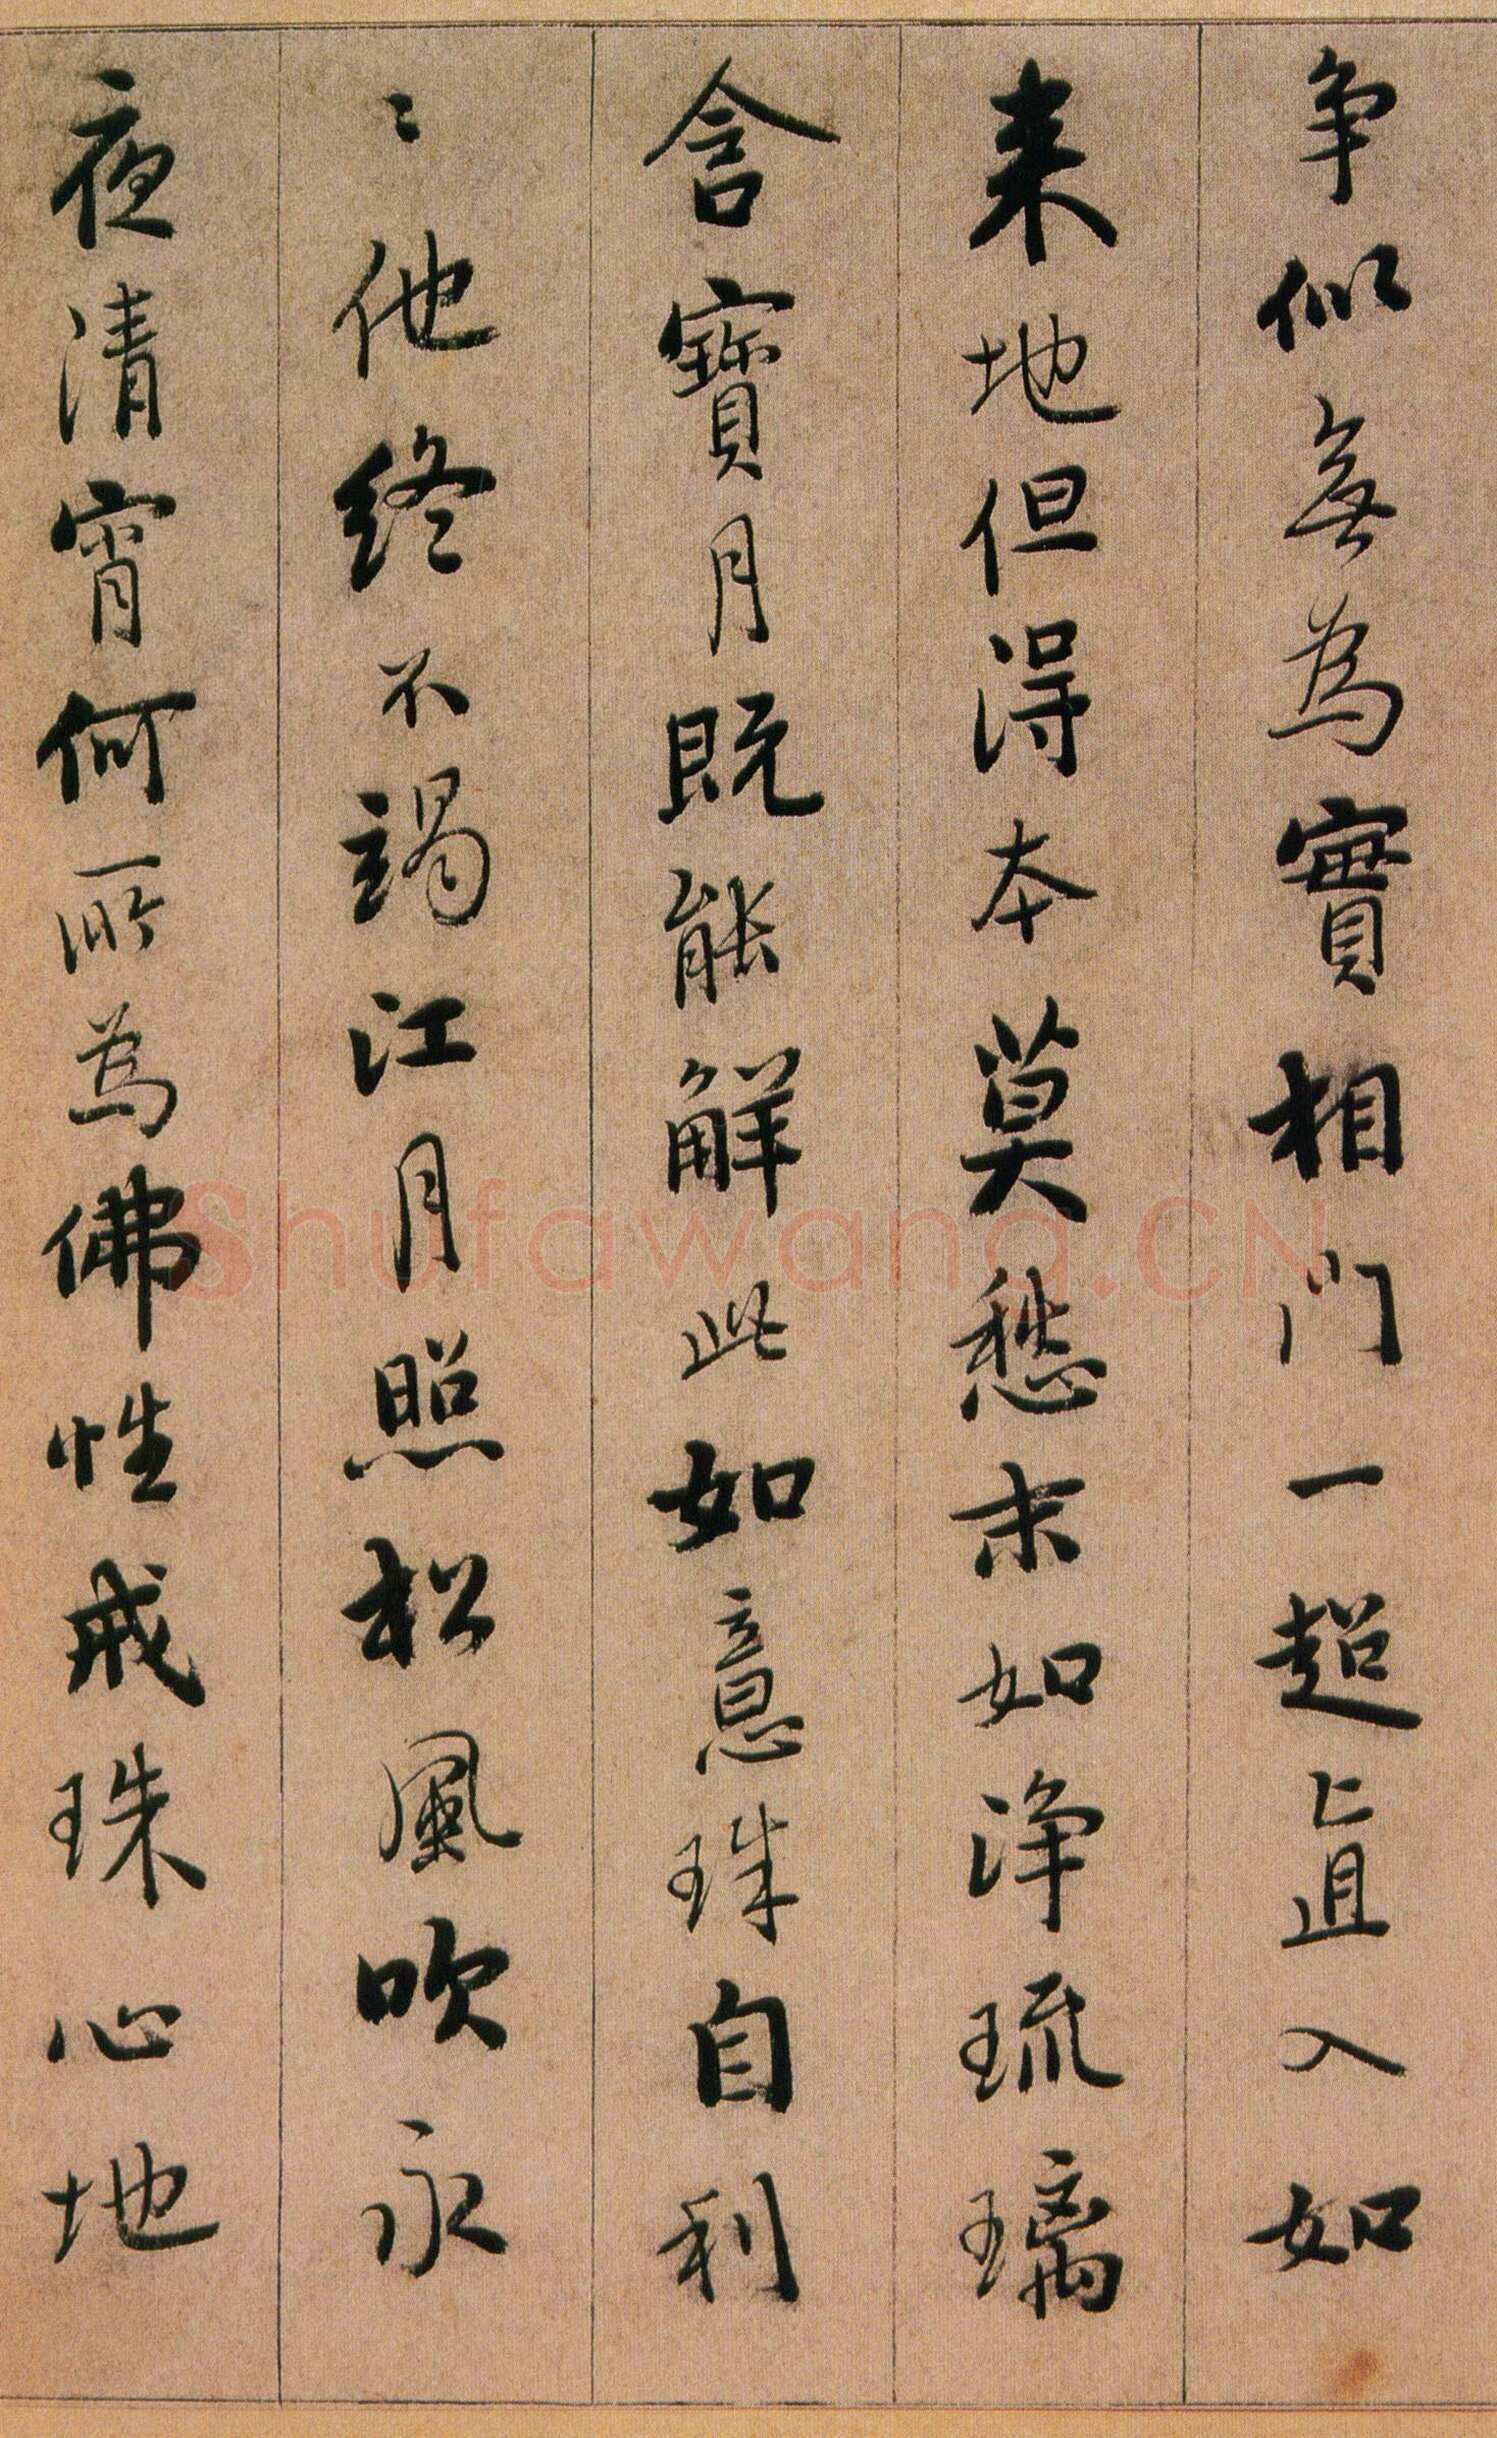 争似無為實相門一超直入如
来地但得本莫愁末如浄琉璃
含寶月既能解此如意珠自利
〻他終不竭江月照松風吹永
夜清宵何所為佛性戒珠心地
shufawang.CN